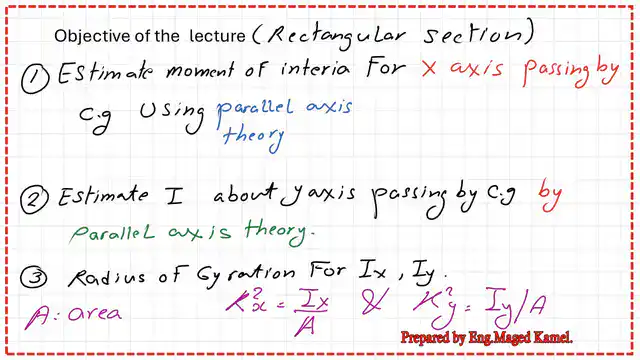 Objective of the lecture (Rectangular section)
① Estimate moment of interia For X axis passing by
C.g Using parallel axis
theory
② Estimate I about y axis passing by C.g by
parallel axis theory.
③ Radius of Gyration For Ix, Iy.
A: area K²x = Ix/A & K²y = Iy/A
Prepared by Eng.Maged Kamel.